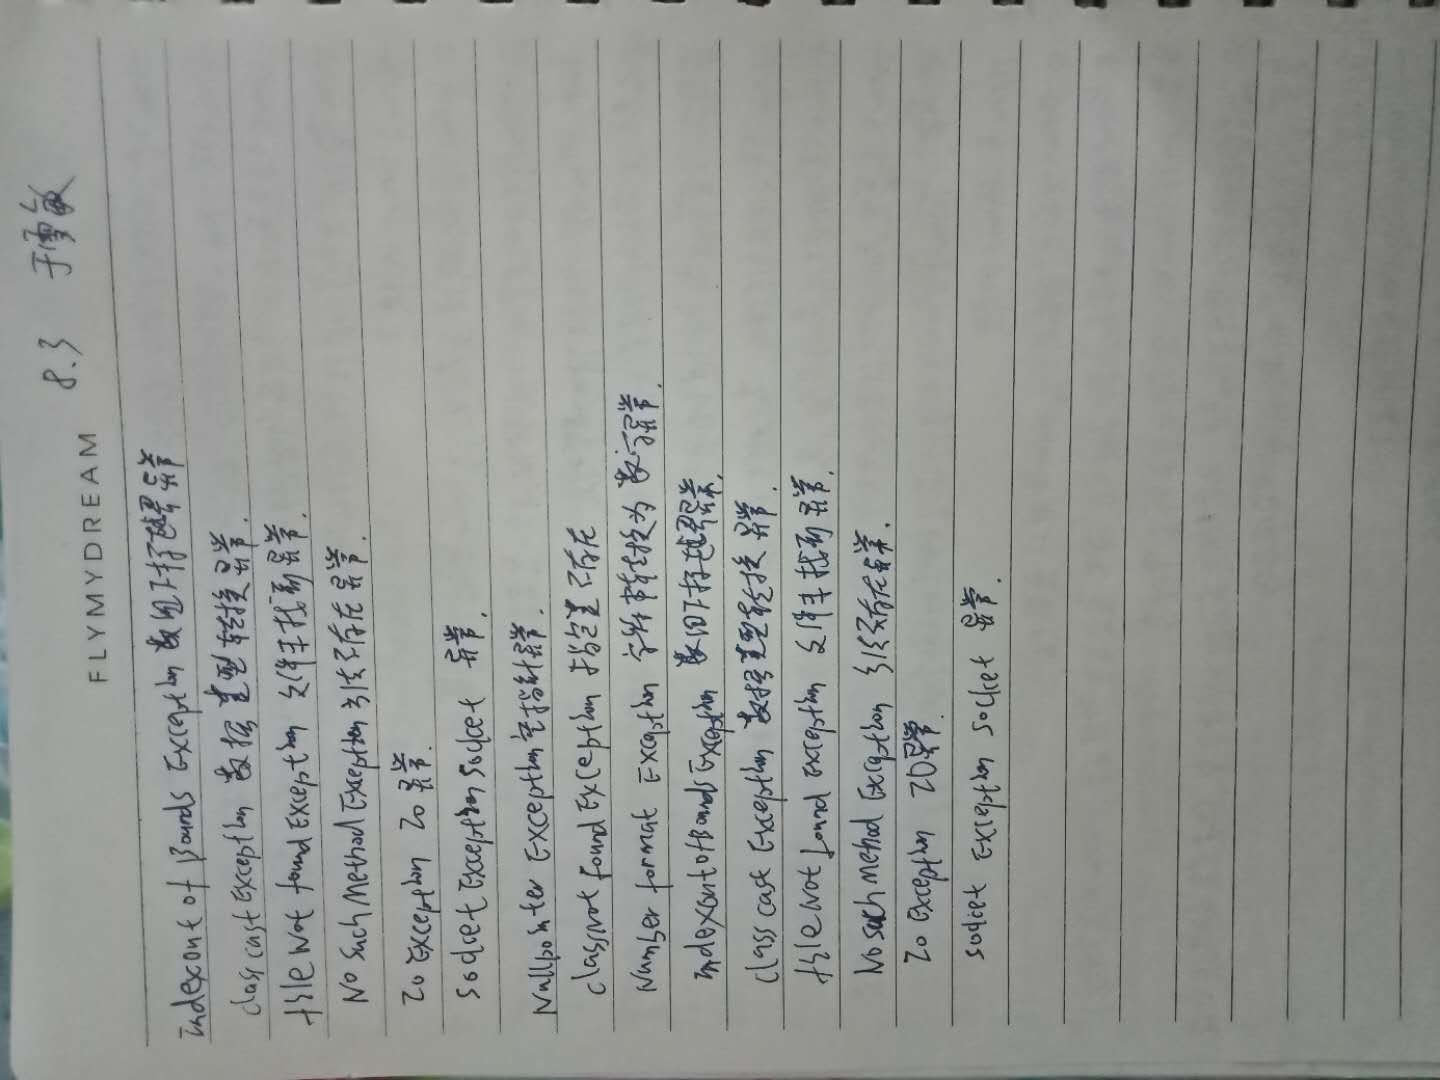 8.3 于雪敏
FLYMYDREAM
Indexout of Bounds Exception 数组下标越界异常
class cast Exception 数据类型转换异常.
file Not found Exception 文件未找到异常.
No such Method Exception 方法不存在异常.
IO Exception IO 异常.
Socket Exception Socket 异常.
Nullpointer Exception 空指针异常.
Classnot found Exception 指定类不存在
Number format Exception 字符串转换为数字异常.
IndexoutofBounds Exception 数组下标越界异常.
class cast Exception 数据类型转换异常.
file Not found exception 文件未找到异常.
No such Method Exception 方法不存在异常.
IO exception IO异常.
Socket exception Socket 异常.